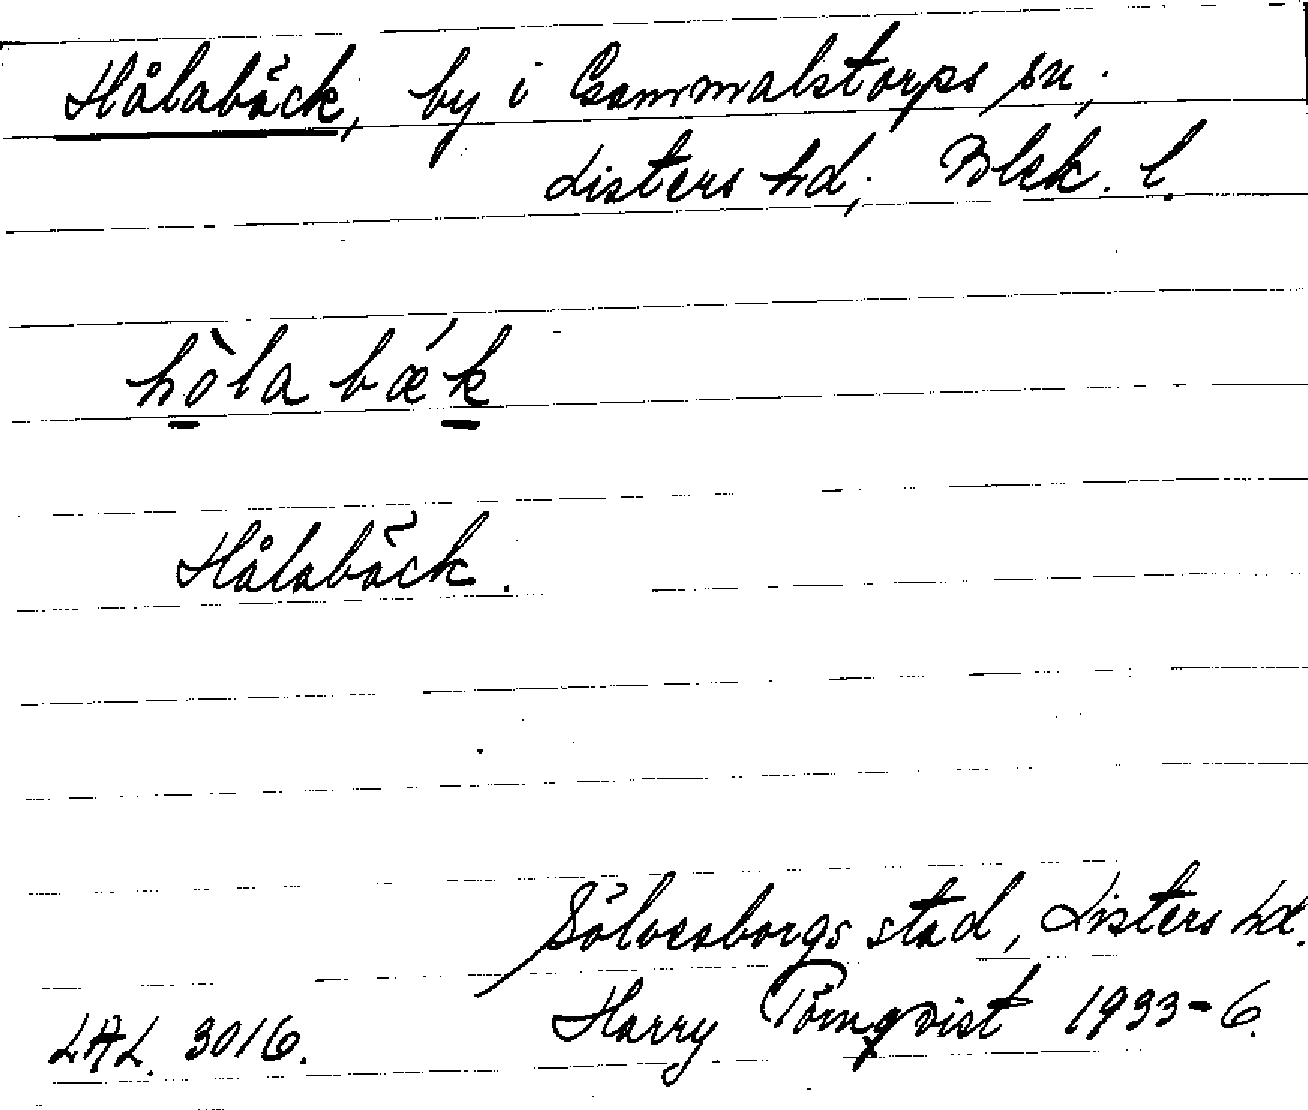 Hålabäck, by i Gammalstorps sn,
Listers hd, Blek. l.
hòlabǽk
Hålabäck.
Sölvesborgs stad, Listers hd.
LAL. 3016. Harry Törnqvist 1933-6.